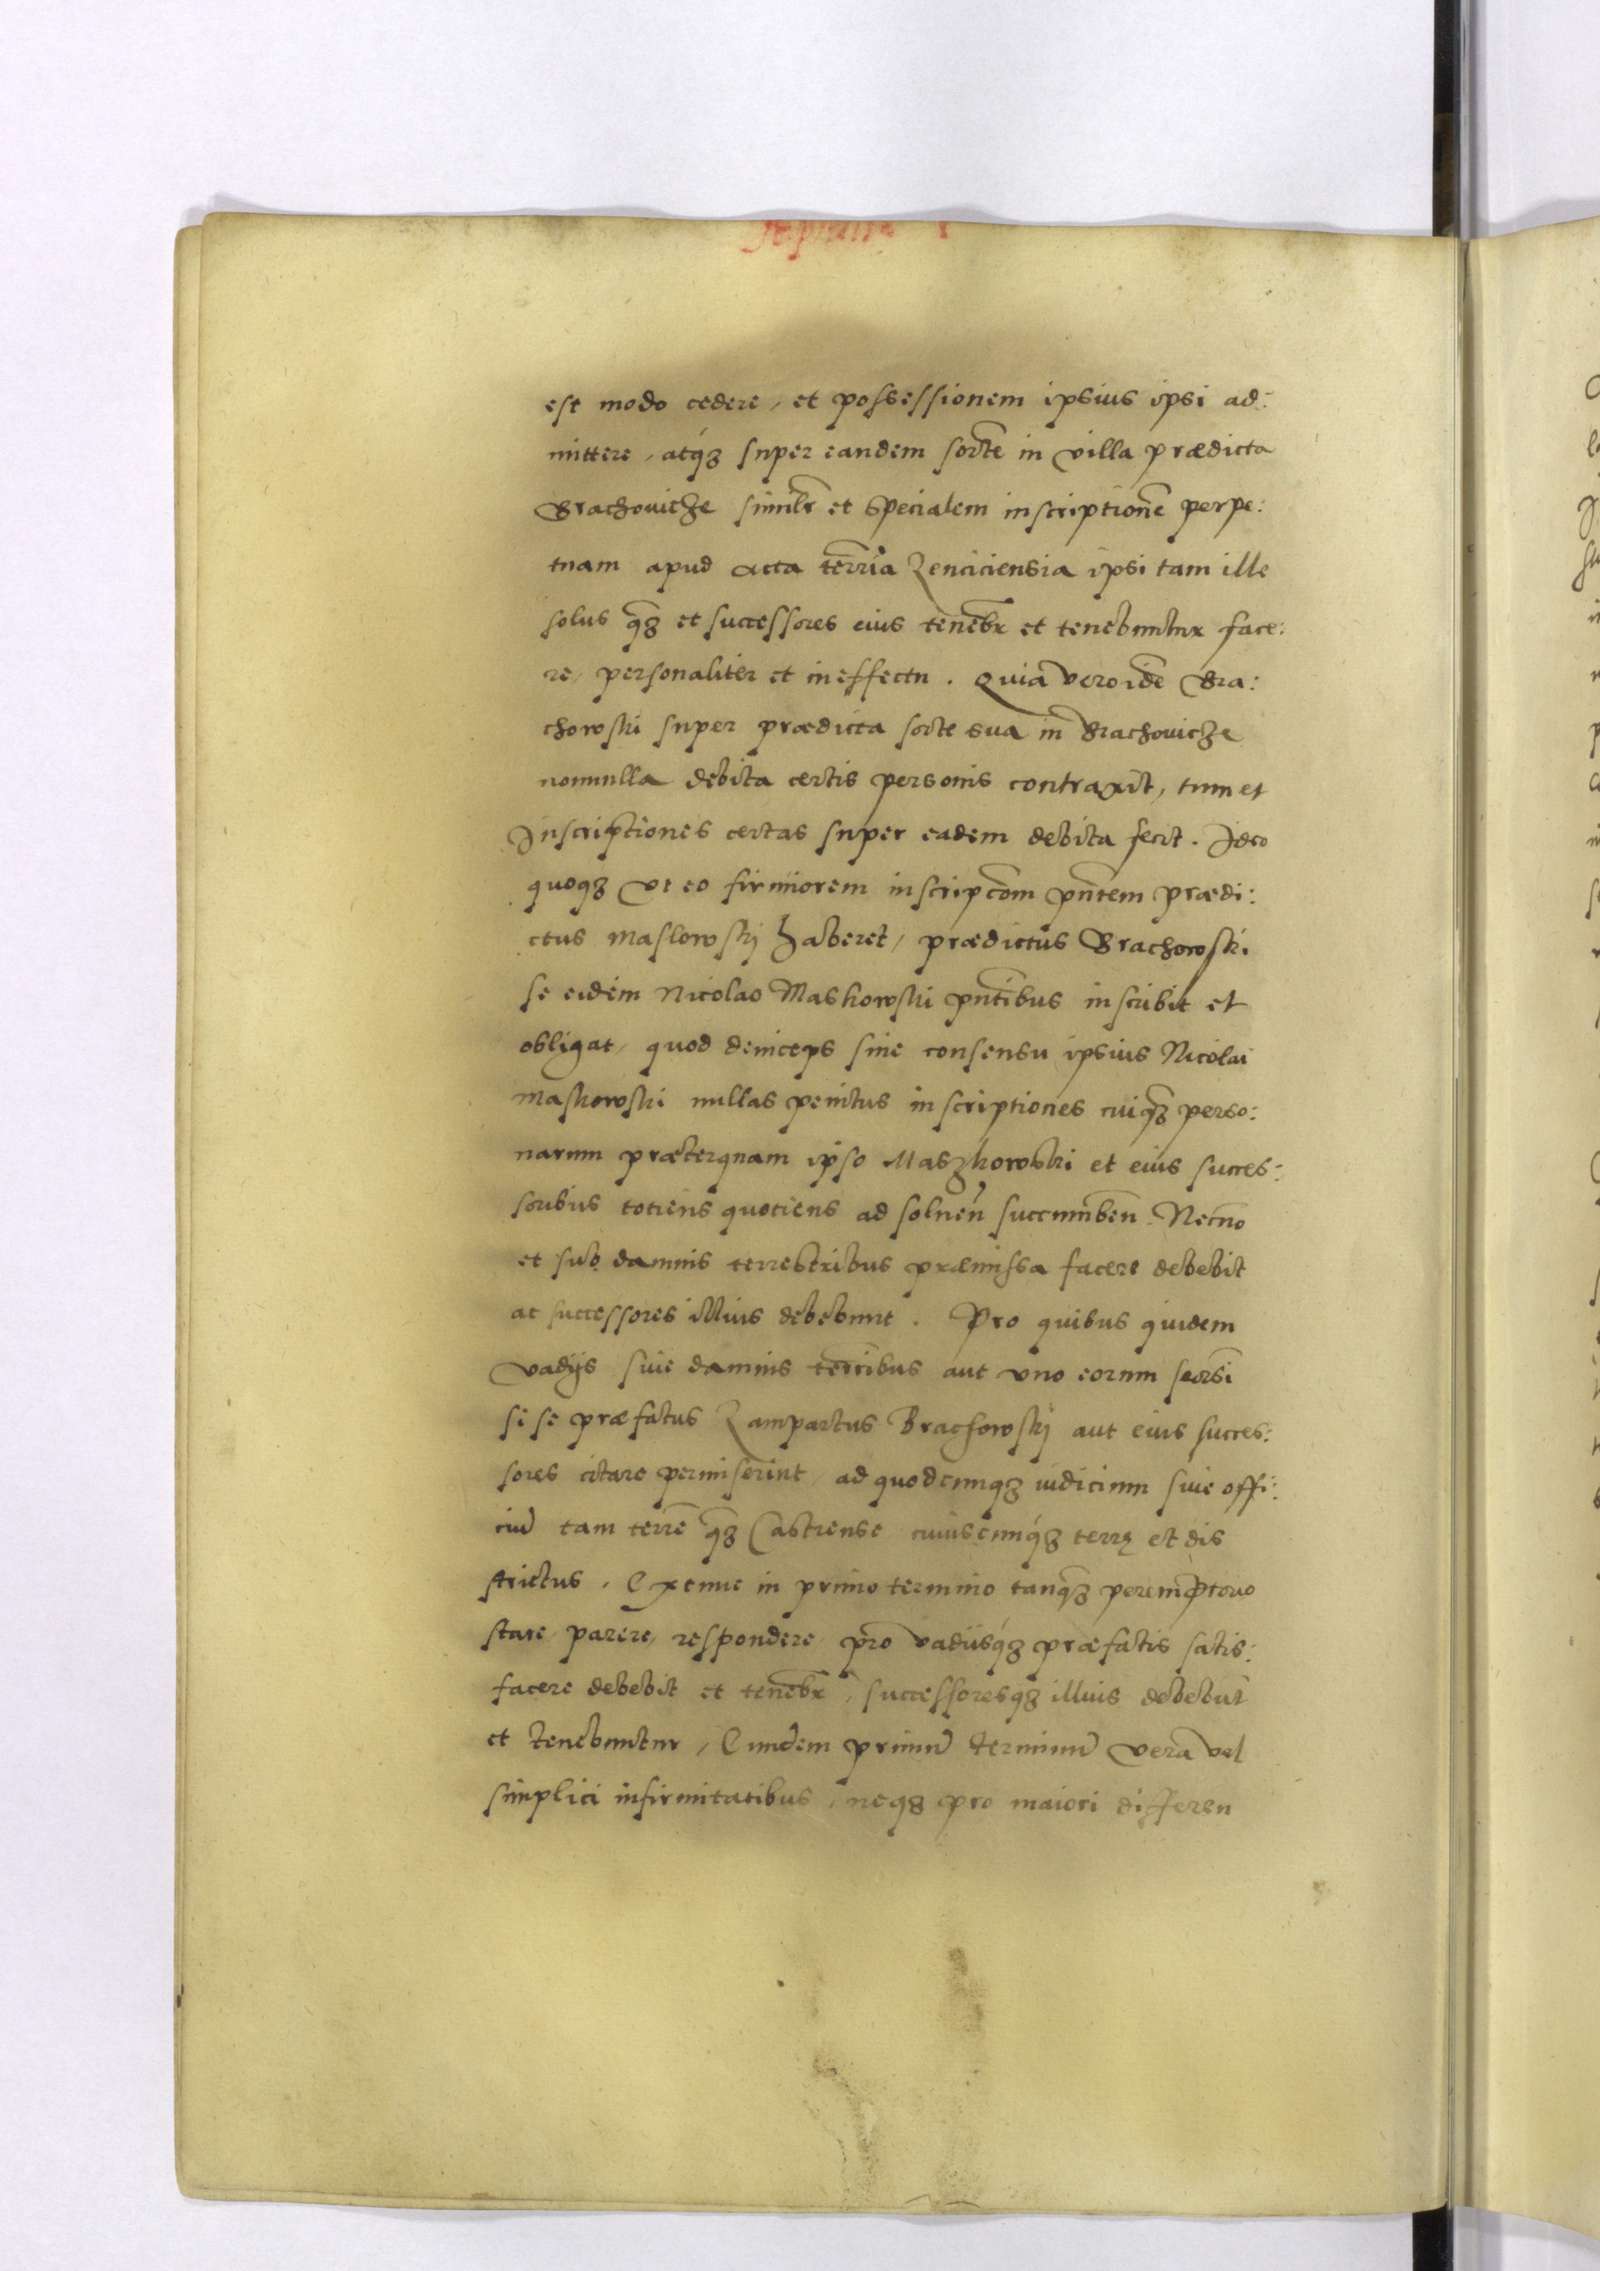 est modo cedere, et possessionem ipsius ipsi ad:
mittere, atq3 super eandem sorte in villa prædicta
Brachouicze similr et specialem inscriptione perpe:
tuam apud acta terria Lenciciensia ipsi tam ille
solus q3 et successores eius tenebr et tenebuntur face:
re, personaliter et in effectu. Quia vero ide Bra:
chowski super prædicta sorte sua in Brachouicze
nonnulla debita certis personis contraxit, tum et
Inscriptiones certas super eadem debita fecit. Ideo
quoq3 vt eo firmiorem inscripcom pntem prædi:
ctus Maslowskj haberet, prædictus Brachowski
se eidem Nicolao Maskowski pntibus inscribit et
obligat, quod deinceps sine consensu ipsius Nicolai
Maskowski nullas penitus inscriptiones cuiq3 perso:
narum præterquam ipso Maszkowski et eius succes:
soribus totiens quotiens ad soluen succumben. Necno
et sub damnis terrestribus præmissa facere debebit
ac successores illius debebunt. Pro quibus quidem
vadijs siue damnis terribus aut vno eorum seorsi
si se præfatus Lampartus Brachowskj aut eius succes:
sores citare permiserint, ad quodcunq3 iudicium siue offi:
ciu tam terre q3 Castrense cuiuscunq3 terrę et dis
strictus. Extunc in primo termino tanq3 peremptorio
stare, parere, respondere, pro vadiisq3 præfatis satis:
facere debebit et tenebr, successoresq3 illius debebut
et tenebuntur, Eundem primu terminu vera vel
simplici infirmitatibus, neq3 pro maiori differen